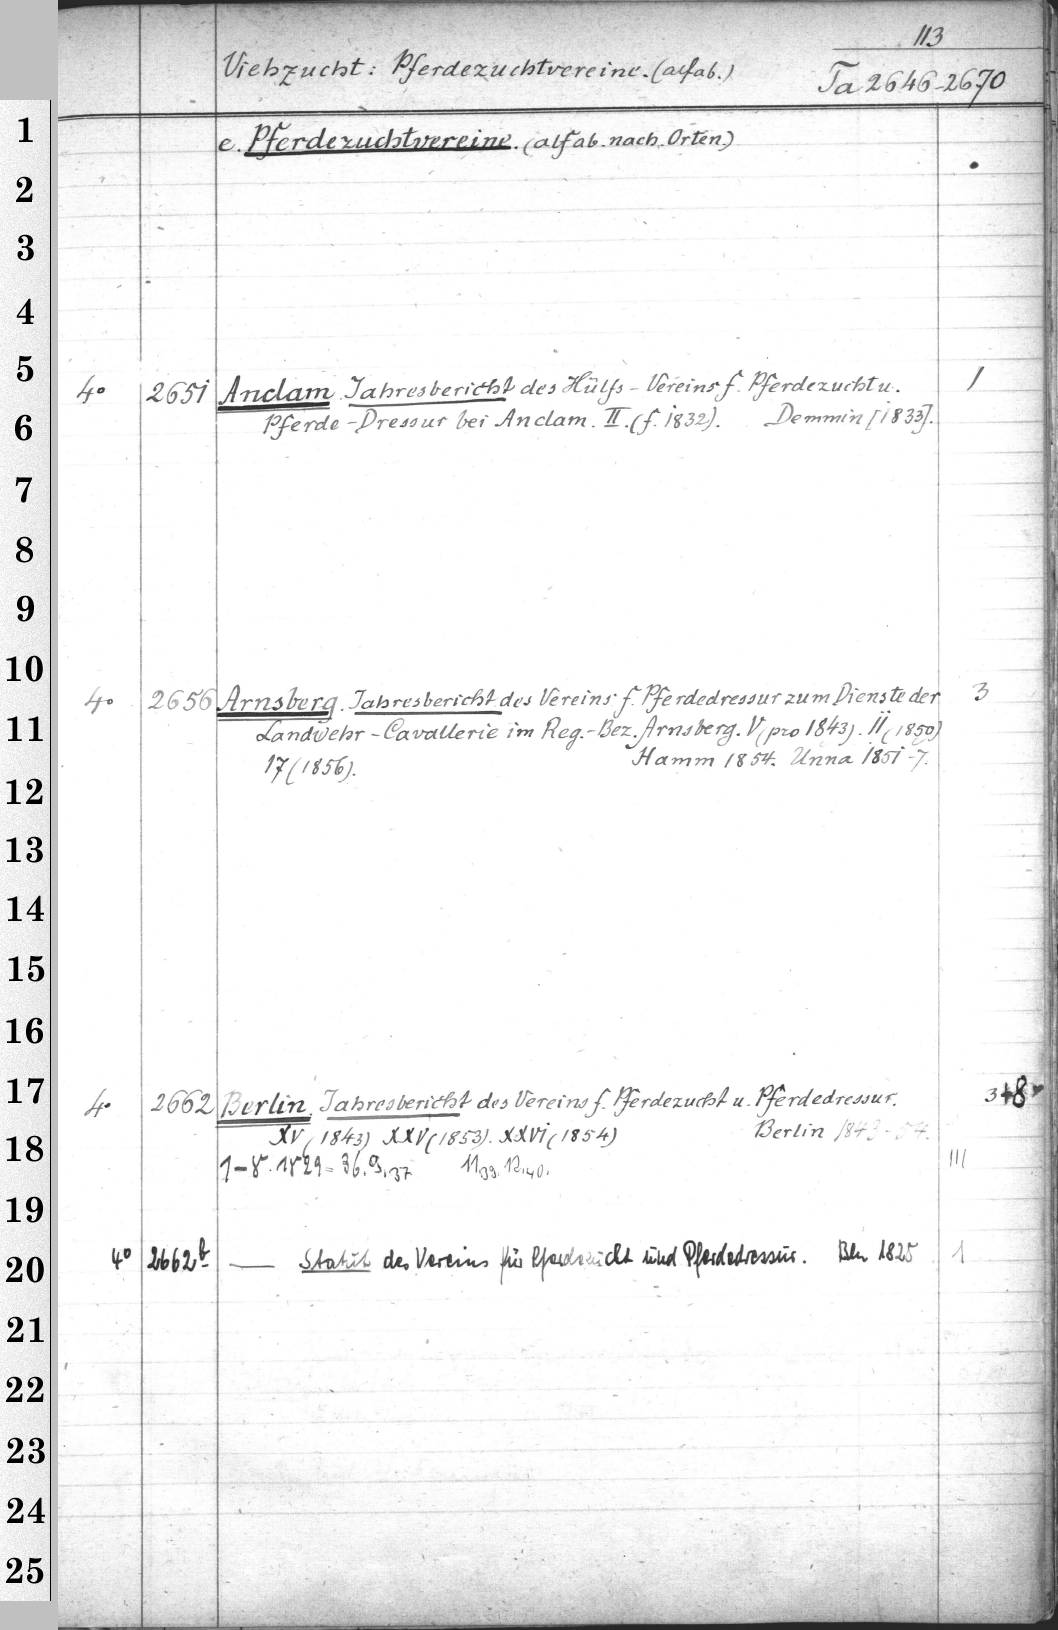 113
Viehzucht: Pferdezuchtvereine. (alfab.)
Ta 2646-2670
1
e. Pferdezuchtvereine. (alfab. nach Orten.)
2
3
4
5
4° 2651 Anclam. Jahresbericht des Hülfs-Vereins f. Pferdezucht u. 1
6
Pferde-Dressur bei Anclam. II. (f. 1832). Demmin [1833].
7
8
9
10
4° 2656 Arnsberg. Jahresbericht des Vereins f. Pferdedressur zum Dienste der 3
11
Landwehr-Cavallerie im Reg.-Bez. Arnsberg. V (pro 1843). II (1850)
17 (1856). Hamm 1854. Unna 1851-7.
12
13
14
15
16
17
4° 2662 Berlin. Jahresbericht des Vereins f. Pferdezucht u. Pferdedressur. 3+8
XV (1843) XXV (1853). XXVI (1854) Berlin 1843-54.
18
1-8. 1829-36. 9.37 11,39. 12,40. III
19
20
4° 2662b — Statut des Vereins für Pferdezucht und Pferdedressur. Bln 1825 1
21
22
23
24
25